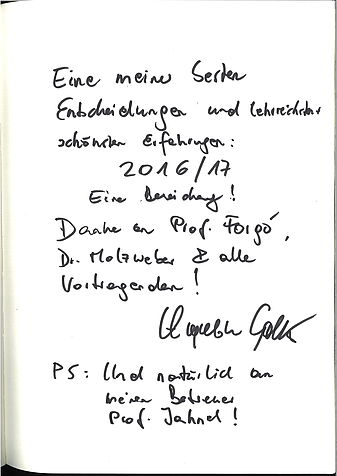 Eine meiner besten
Entscheidungen und lehrreichsten
schönsten Erfahrungen:
2016/17
Eine Bereicherung!
Danke an Prof. Forgó,
Dr. Molzweber & alle
Vortragenden!
PS: Und natürlich an
meinen Betreuer
Prof. Jahnel!